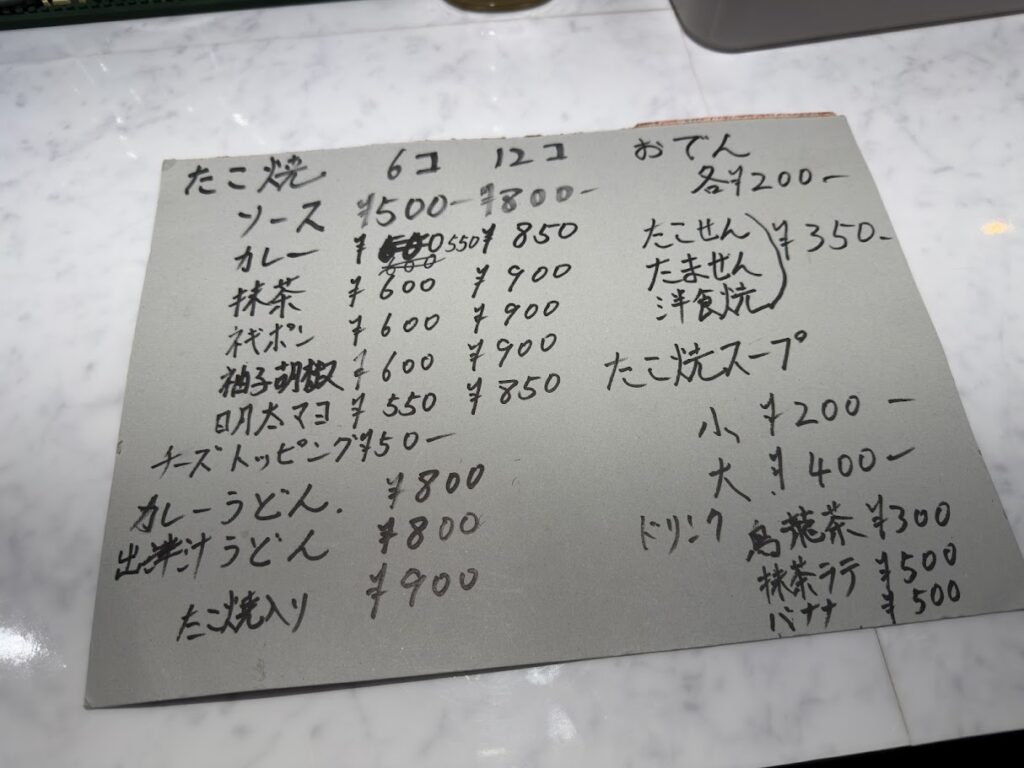 たこ焼 6コ 12コ
ソース ¥500- ¥800-
カレー ¥ 550 ¥850
抹茶 ¥600 ¥900
ネギポン ¥600 ¥900
柚子胡椒 ¥600 ¥900
明太マヨ ¥550 ¥850
チーズトッピング ¥50-
カレーうどん. ¥800
出津汁うどん ¥800
たこ焼入り ¥900
おでん
各¥200-
たこせん
たません ¥350-
洋食焼
たこ焼スープ
小 ¥200-
大 ¥400-
ドリンク 烏龍茶 ¥300
抹茶ラテ ¥500
バナナ ¥500